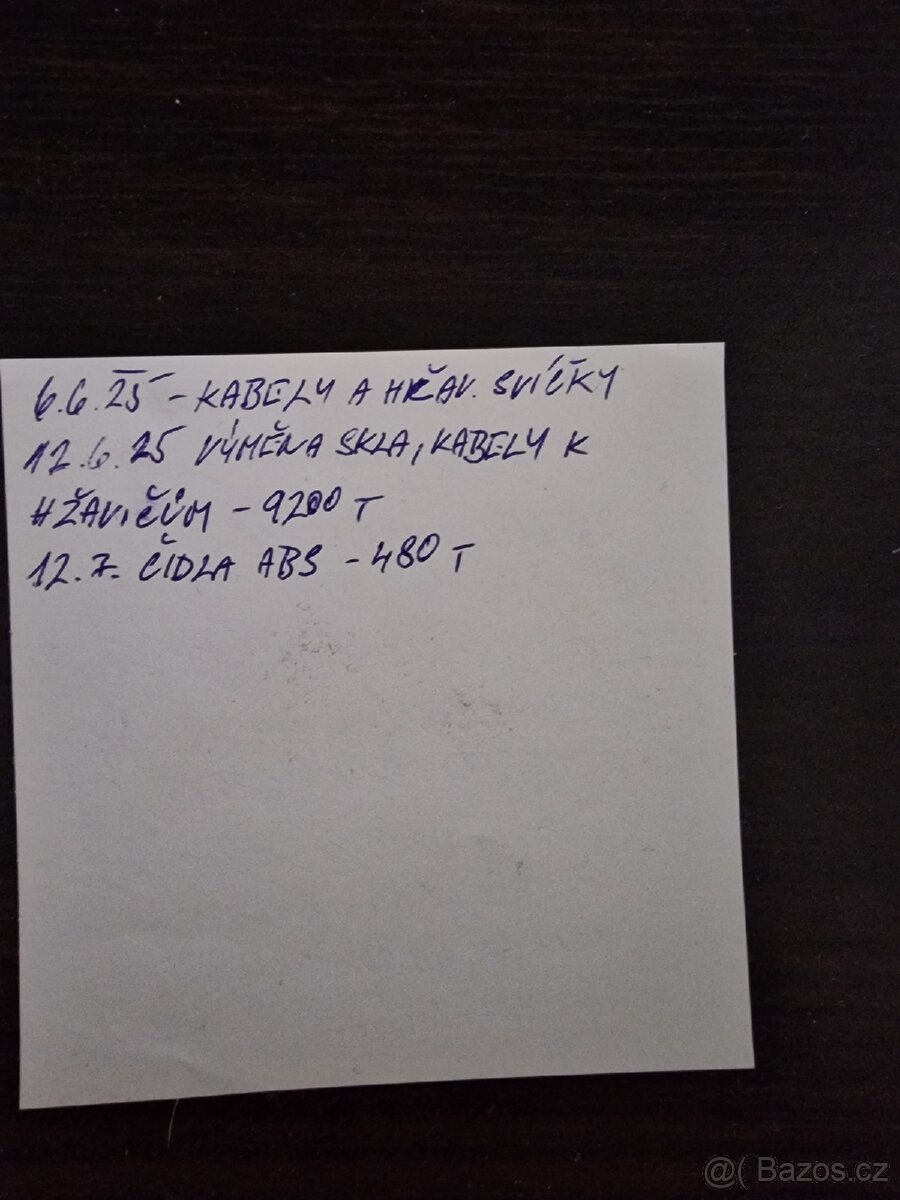 6.6.25 - KABELY A HŽAV. SVÍČKY
12.6.25 VÝMĚNA SKLA, KABELY K
HŽAVIČŮM - 9200 T
12.7. ČÍDLA ABS - 480 T
@( Bazos.cz